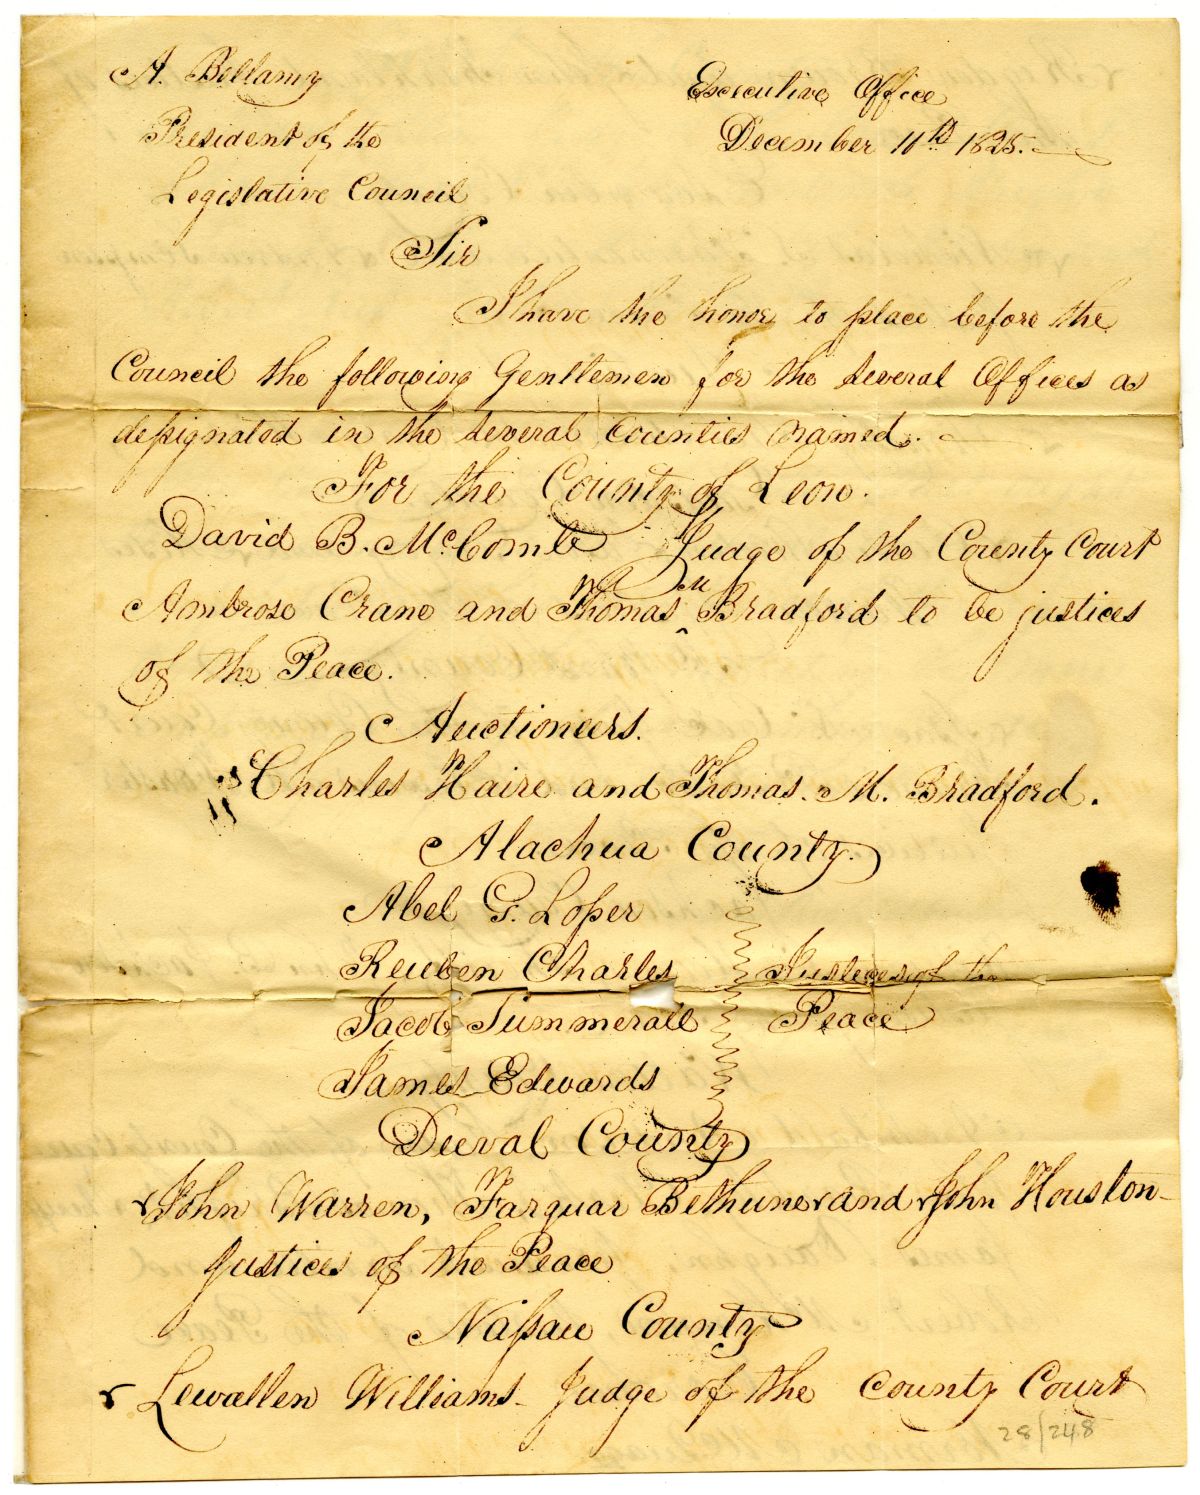 A. Bellamy
President of the
Legislative Council
Executive Office
December 10th 1825.
Sir
I have the honor to place before the
Council the following Gentlemen for the several Offices as
designated in the several Counties named.
For the County of Leon.
David B. McComb Judge of the County Court
Ambrose Crane and Thomas M Bradford to be justices
of the Peace.
Auctioneers.
Charles Haire and Thomas. M. Bradford.
Alachua County.
Abel G. Loper
Reuben Charles Justices of the
Jacob Summerall Peace
James Edwards
Duval County
John Warren, Farquar Bethune and John Houston
Justices of the Peace
Nassau County
Lewallen Williams Judge of the County Court
28/248